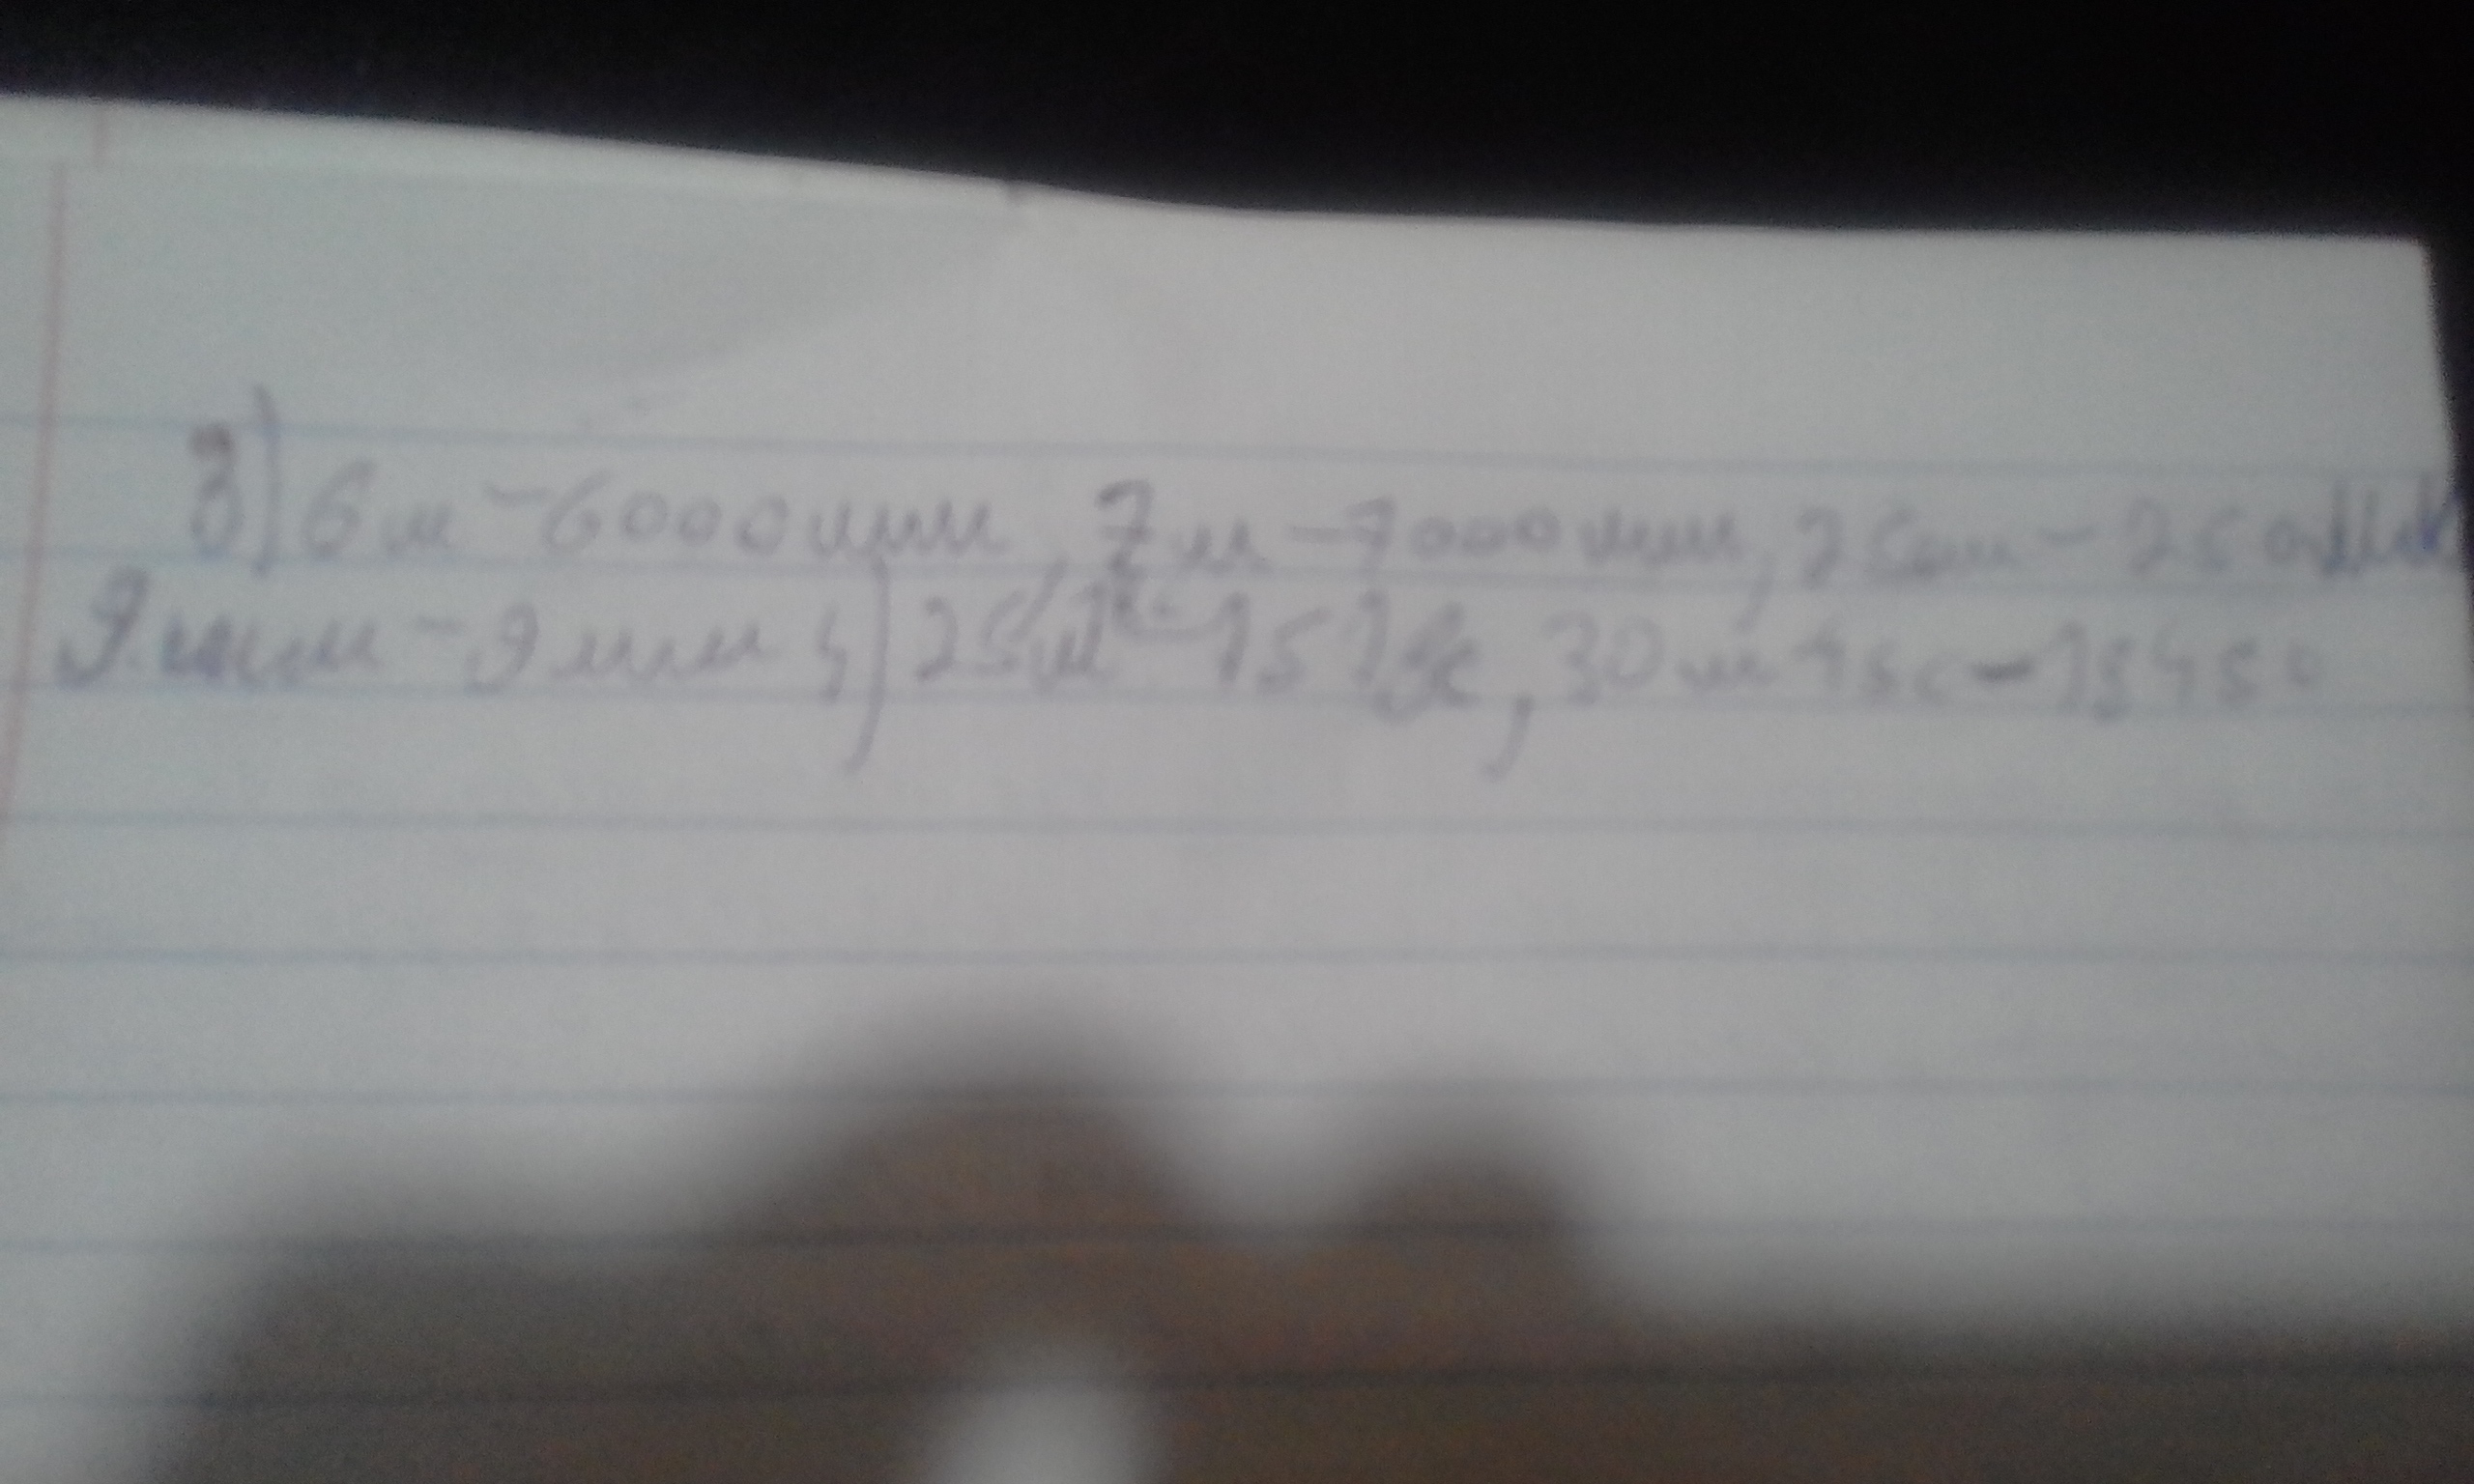 3) 6м - 6000мм, 7м - 7000мм, 25см - 250мм
9мм - 9мм 4) 25м - 15 , 30м 45с - 1545с